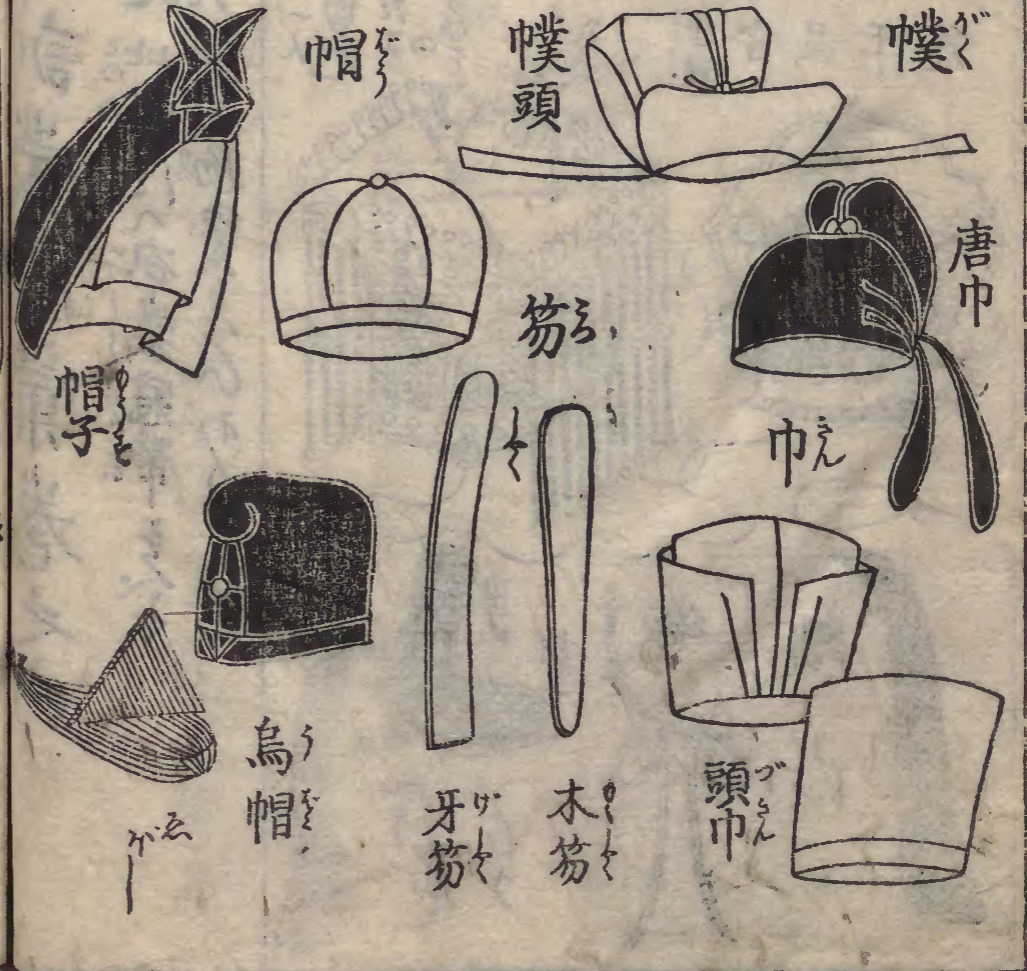 幞 がく
幞頭
唐巾
巾 きん
頭巾 づきん
帽 ぼう
笏 しやく
木笏 もくしやく
牙笏 げしやく
帽子 もうす
烏帽 うぼう
ゑぼし